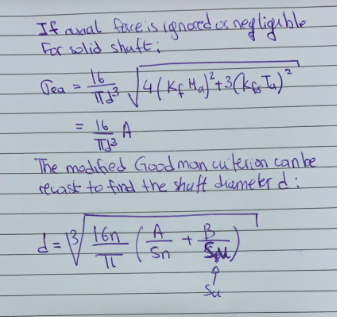 If axial force is ignored or negligible
For solid shaft;
σea = 16/πd³ √4(Kf Ma)²+3(Kfs Ta)²
= 16/πd³ A
The modified Goodman criterion can be
recast to find the shaft diameter d:
d = ∛16n/π (A/Sn + B/Su)
↑
Su